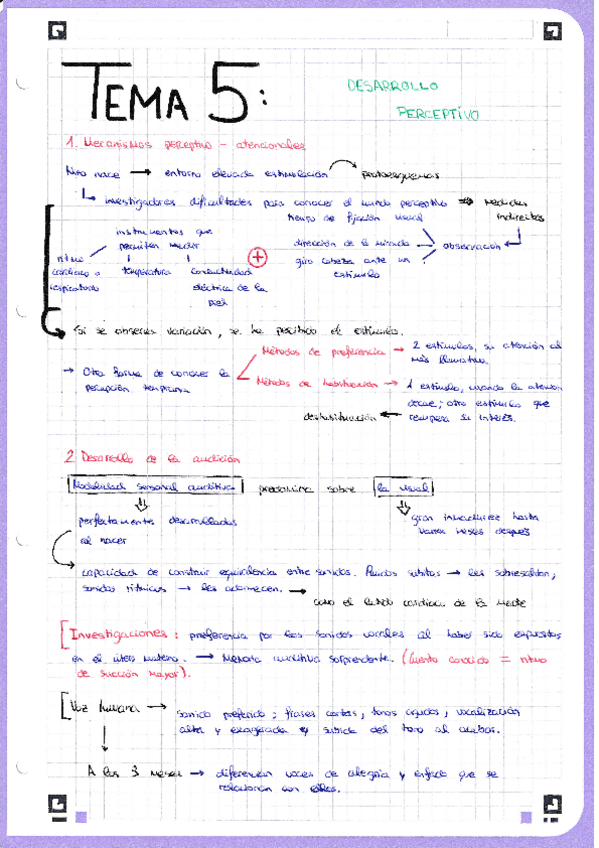 TEMA 5:
DESARROLLO
PERCEPTIVO
1. Mecanismos perceptivo - atencionales
Niño nace → entorno elevada estimulación → protoesquemas
↳ investigadores dificultades para conocer el mundo perceptivo ⇒ Medidas
indirectas
instrumentos que
permiten medir
ritmo
cardíaco o
respiratorio
temperatura
conductividad
eléctrica de la
piel
+
tiempo de fijación visual
dirección de la mirada
giro cabeza ante un
estímulo
observación
Si se observa variación, se ha percibido el estímulo.
→ Otra forma de conocer la
percepción temprana
Métodos de preferencia → 2 estímulos, su atención al
más llamativo.
Métodos de habituación → 1 estímulo, cuando la atención
decae; otro estímulo que
recupera su interés.
deshabituación ←
2 Desarrollo de la audición
Modalidad sensorial auditiva predomina sobre la visual
perfectamente desarrollada
al nacer
gran inmadurez hasta
varios meses después
capacidad de construir equivalencia entre sonidos. Ruidos súbitos → les sobresaltan,
sonidos rítmicos → les adormecen. →
como el latido cardíaco de la madre
Investigaciones: preferencia por los sonidos vocales al haber sido expuestos
en el útero materno. → Memoria auditiva sorprendente. (Cuento conocido = ritmo
de succión mayor).
Voz humana → sonido preferido; frases cortas, tonos agudos, vocalización
alta y exagerada y subida del tono al acabar.
A los 3 meses → diferencian voces de alegría y enfado que se
relacionan con ellos.